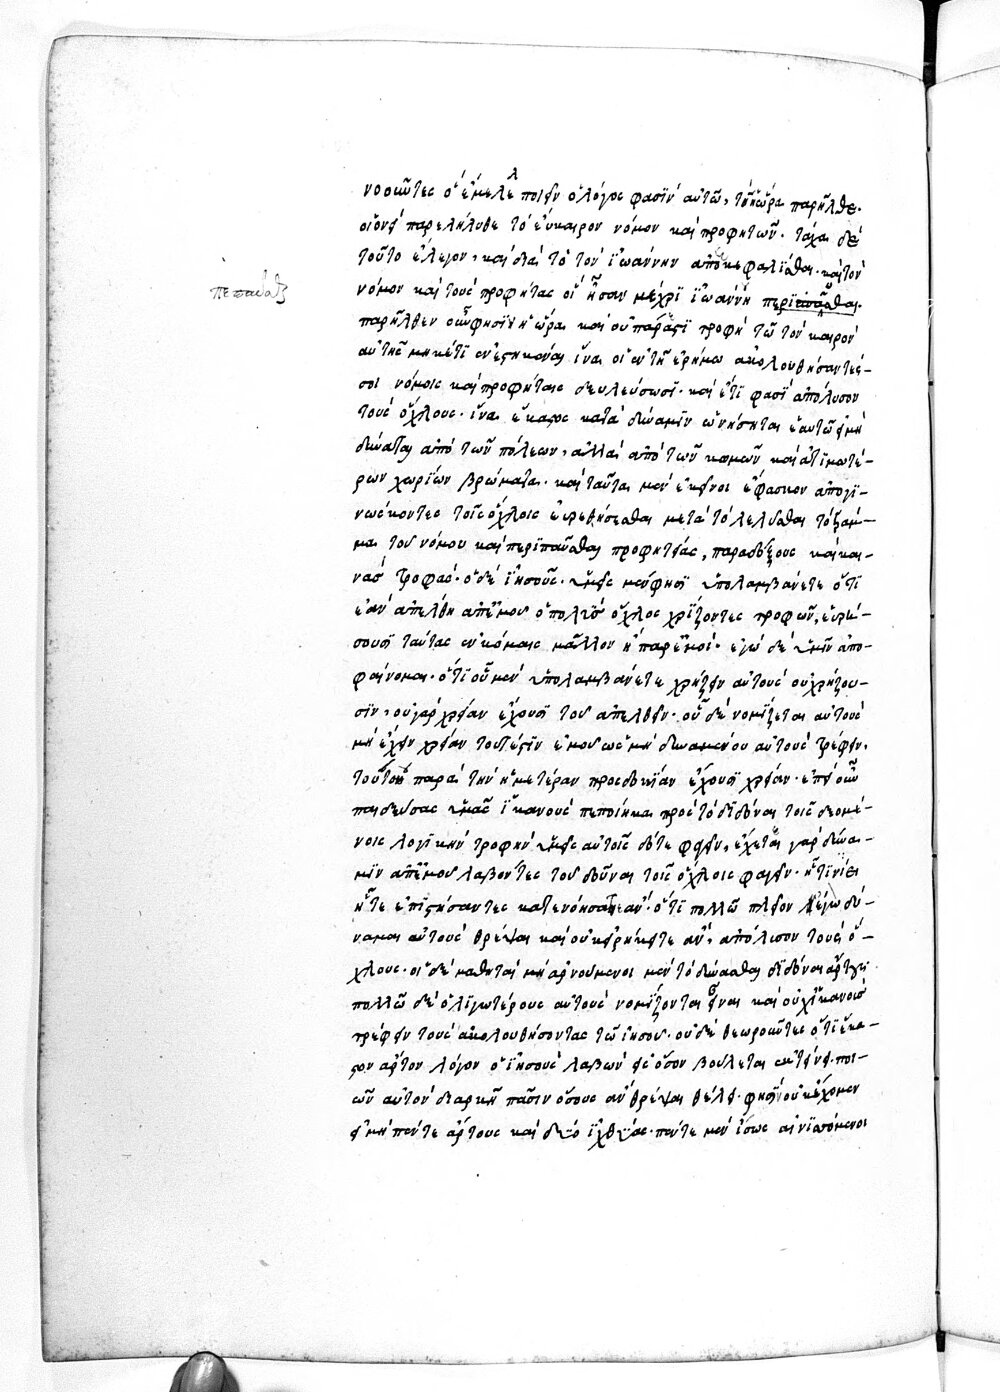 νοοῦντες ὃ ἔμελλε ποιεῖν ὁ λόγος φασὶν αὐτῷ, τὴν ὥραν παρῆλθε.
οἱονεὶ παρελήλυθε τὸ εὔκαιρον νόμου καὶ προφητῶν. τάχα δὲ
τοῦτο ἔλεγον, καὶ διὰ τὸ τὸν ἰωάννην ἀποκεφαλίσθαι. καὶ τὸν
νόμον καὶ τοὺς προφήτας οἳ ἦσαν μέχρι ἰωάννη
πεπαῦσθαι
παρῆλθεν οὖν φησὶν ἡ ὥρα καὶ οὐ πάρεστι τροφὴ τῷ τὸν καιρὸν
αὐτῆς μηκέτι ἐνεστηκέναι ἵνα οἱ ἐν τῇ ἐρήμῳ ἀκολουθήσαντές-
σοι νόμοις καὶ προφήταις δουλεύσωσι. καὶ ἔτι φασὶ ἀπόλυσον
τοὺς ὄχλους. ἵνα ἕκαστος κατὰ δύναμιν ὠνήσηται ἑαυτῷ εἰ μὴ
δύναται ἀπὸ τῶν πόλεων, ἀλλὰ ἀπὸ τῶν κωμῶν καὶ ἀτιμωτέ-
ρων χωρίων βρώματα. καὶ ταῦτα μὲν ἐκεῖνοι ἔφασκον ἀπογι-
νώσκοντες τοῖς ὄχλοις εὑρεθήσεσθαι μετὰ τὸ λελύσθαι τὸ γράμ-
μα τοῦ νόμου καὶ πεπαῦσθαι προφητείας, παραδόξους καὶ και-
νὰς τροφάς. ὁ δὲ ἰησοῦς. ὑμεῖς μέν φησι ὑπολαμβάνετε ὅτι
ἐὰν ἀπέλθη ἀπ' ἐμοῦ ὁ πολὺς ὄχλος χρήζοντες τροφῶν, εὑρή-
σουσι ταύτας ἐν κώμαις μᾶλλον ἢ παρ' ἐμοί. ἐγὼ δὲ ὑμῖν ἀπο-
φαίνομαι. ὅτι οὗ μὲν ὑπολαμβάνετε χρήζειν αὐτοὺς οὐ χρήζου-
σιν, οὐ γὰρ χρείαν ἔχουσι τοῦ ἀπελθεῖν. οὗ δὲ νομίζεται αὐτοὺς
μὴ ἔχειν χρείαν τουτέστιν ἐμοῦ ὡς μὴ δυναμένου αὐτοὺς τρέφειν,
τούτου παρὰ τὴν ἡμετέραν προσδοκίαν ἔχουσι χρείαν. ἐπεὶ οὖν
παιδεύσας ὑμᾶς ἱκανοὺς πεποίηκα πρὸς τὸ διδόναι τοῖς δεομέ-
νοις λογικὴν τροφὴν ὑμεῖς αὐτοῖς δότε φαγεῖν, ἔχεται γὰρ δύνα-
μιν ἀπ' ἐμοῦ λαβόντες τοῦ δοῦναι τοῖς ὄχλοις φαγεῖν.
ἦτε ἐπιστήσαντες κατενοήσατε ἄν. ὅτι πολλῷ πλεῖον ἐγὼ δύ-
ναμαι αὐτοὺς θρέψαι καὶ οὐκ εἰρήκειτε ἄν, ἀπόλυσον τοὺς ὄ-
χλους. οἱ δὲ μαθηταὶ μὴ ἀρνούμενοι μὲν τὸ δύνασθαι διδόναι
πολλῷ δὲ ὀλιγωτέρους αὐτοὺς νομίζονται εἶναι καὶ οὐχ ἱκανοὺς
τρέφειν τοὺς ἀκολουθήσοντας τῷ ἰησοῦ. οὐδὲ θεωροῦντες ὅτι ἕκα-
στον ἄρτον λόγον ὁ ἰησοῦς λαβὼν εἰς ὅσον βούλεται ἐκτείνει. ποι-
ῶν αὐτὸν διαρκῆ πᾶσιν ὅσους ἂν θρέψαι θέλει. φησὶν οὐκ ἔχομεν
εἰ μὴ πέντε ἄρτους καὶ δύο ἰχθύας. πέντε μὲν ἴσως αἰνισσόμενοι